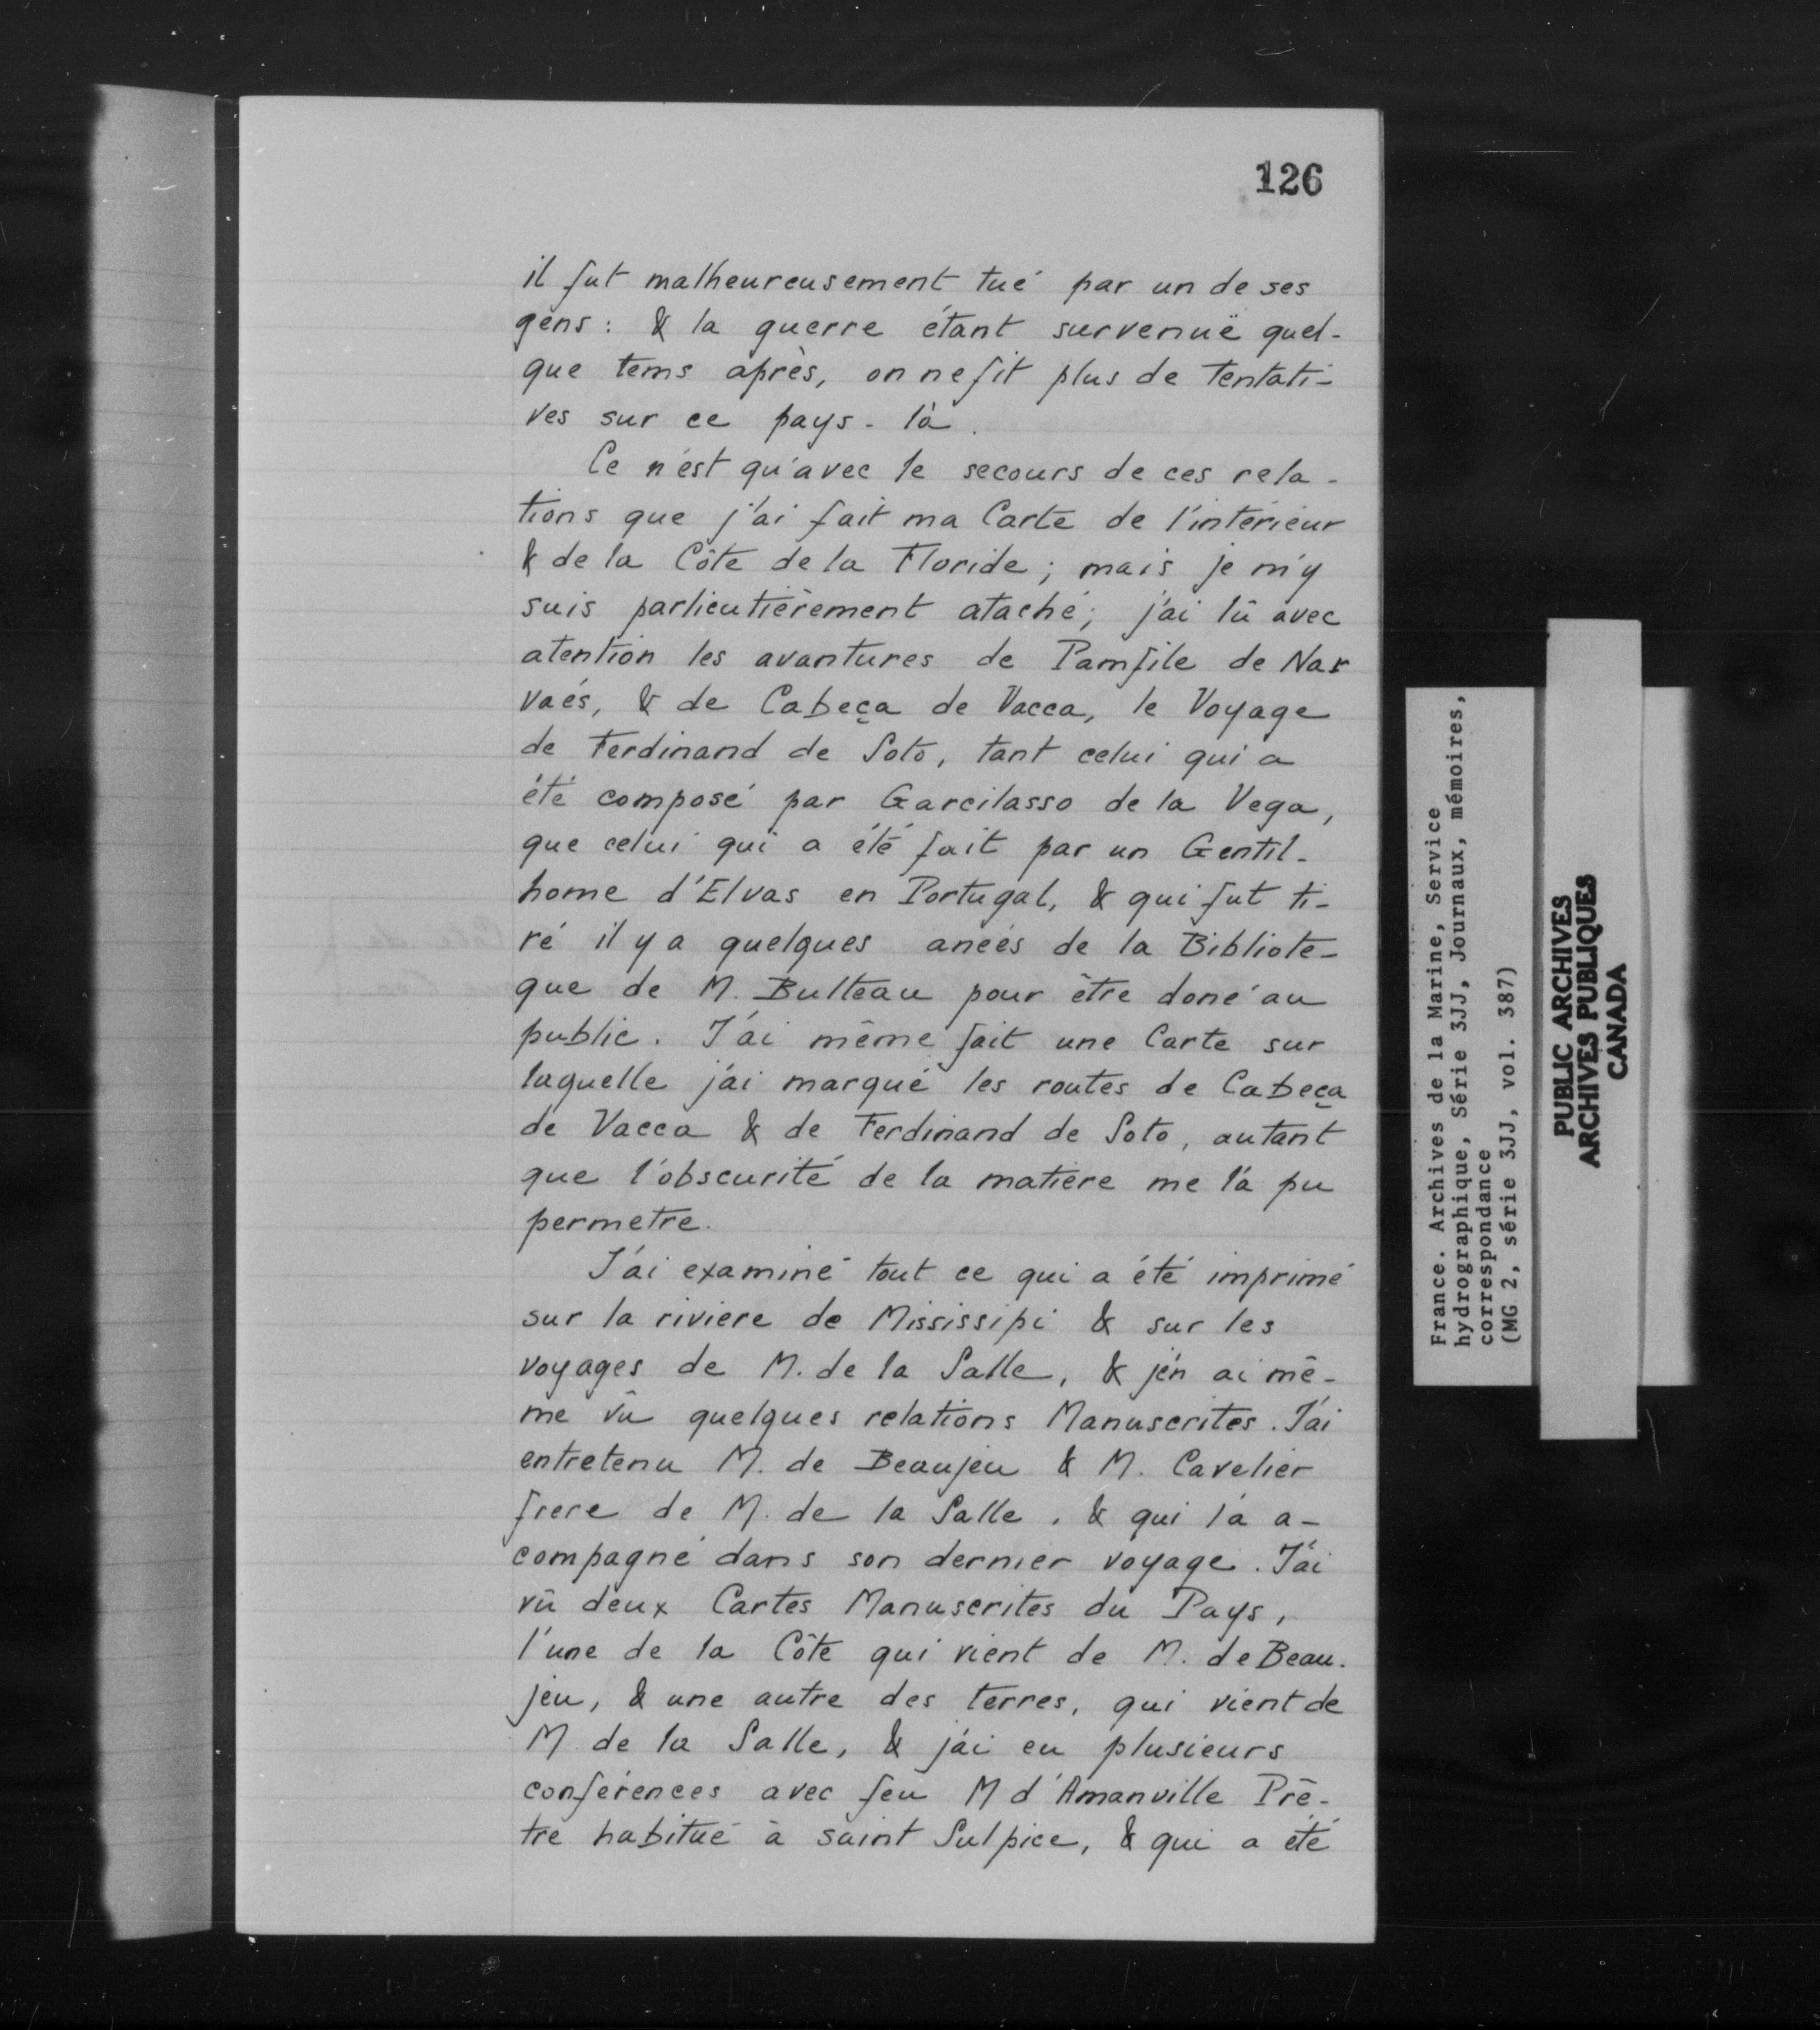 126
il fut malheureusement tué par un de ses
gens : & la guerre étant survenuë quel-
que tems après, on ne fit plus de tentati-
ves sur ce pays-là.
Ce n'est qu'avec le secours de ces rela-
tions que j'ai fait ma Carte de l'intérieur
& de la Côte de la Floride ; mais je m'y
suis particulièrement ataché ; j'ai lû avec
atention les avantures de Pamfile de Nar
vaés, & de Cabeça de Vacca, le Voyage
de Ferdinand de Soto, tant celui qui a
été composé par Garcilasso de la Vega,
que celui qui a été fait par un Gentil-
home d'Elvas en Portugal, & qui fut ti-
ré il y a quelques aneés de la Bibliote-
que de M. Bulteau pour être doné au
public. J'ai même fait une Carte sur
laquelle j'ai marqué les routes de Cabeça
de Vacca & de Ferdinand de Soto, autant
que l'obscurité de la matiere me l'a pu
permetre.
J'ai examiné tout ce qui a été imprimé
sur la riviere de Mississipi & sur les
voyages de M. de la Salle, & j'en ai mê-
me vû quelques relations Manuscrites. J'ai
entretenu M. de Beaujeu & M. Cavelier
frere de M. de la Salle, & qui l'a a-
compagné dans son dernier voyage. J'ai
vû deux Cartes Manuscrites du Pays,
l'une de la Côte qui vient de M. de Beau-
jeu, & une autre des terres, qui vient de
M. de la Salle, & j'ai eu plusieurs
conférences avec feu M d'Amanville Prê-
tre habitué à saint Sulpice, & qui a été
France. Archives de la Marine, Service
hydrographique, Série 3JJ, Journaux, mémoires,
correspondance
(MG 2, série 3JJ, vol. 387)
PUBLIC ARCHIVES
ARCHIVES PUBLIQUES
CANADA